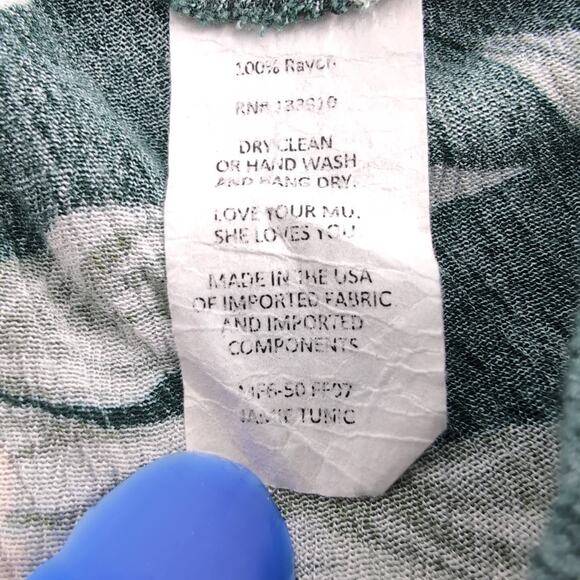 100% Rayon
RN# 133610
DRY CLEAN
OR HAND WASH
AND HANG DRY.
LOVE YOUR MU.
SHE LOVES YOU
MADE IN THE USA
OF IMPORTED FABRIC
AND IMPORTED
COMPONENTS
TUNIC